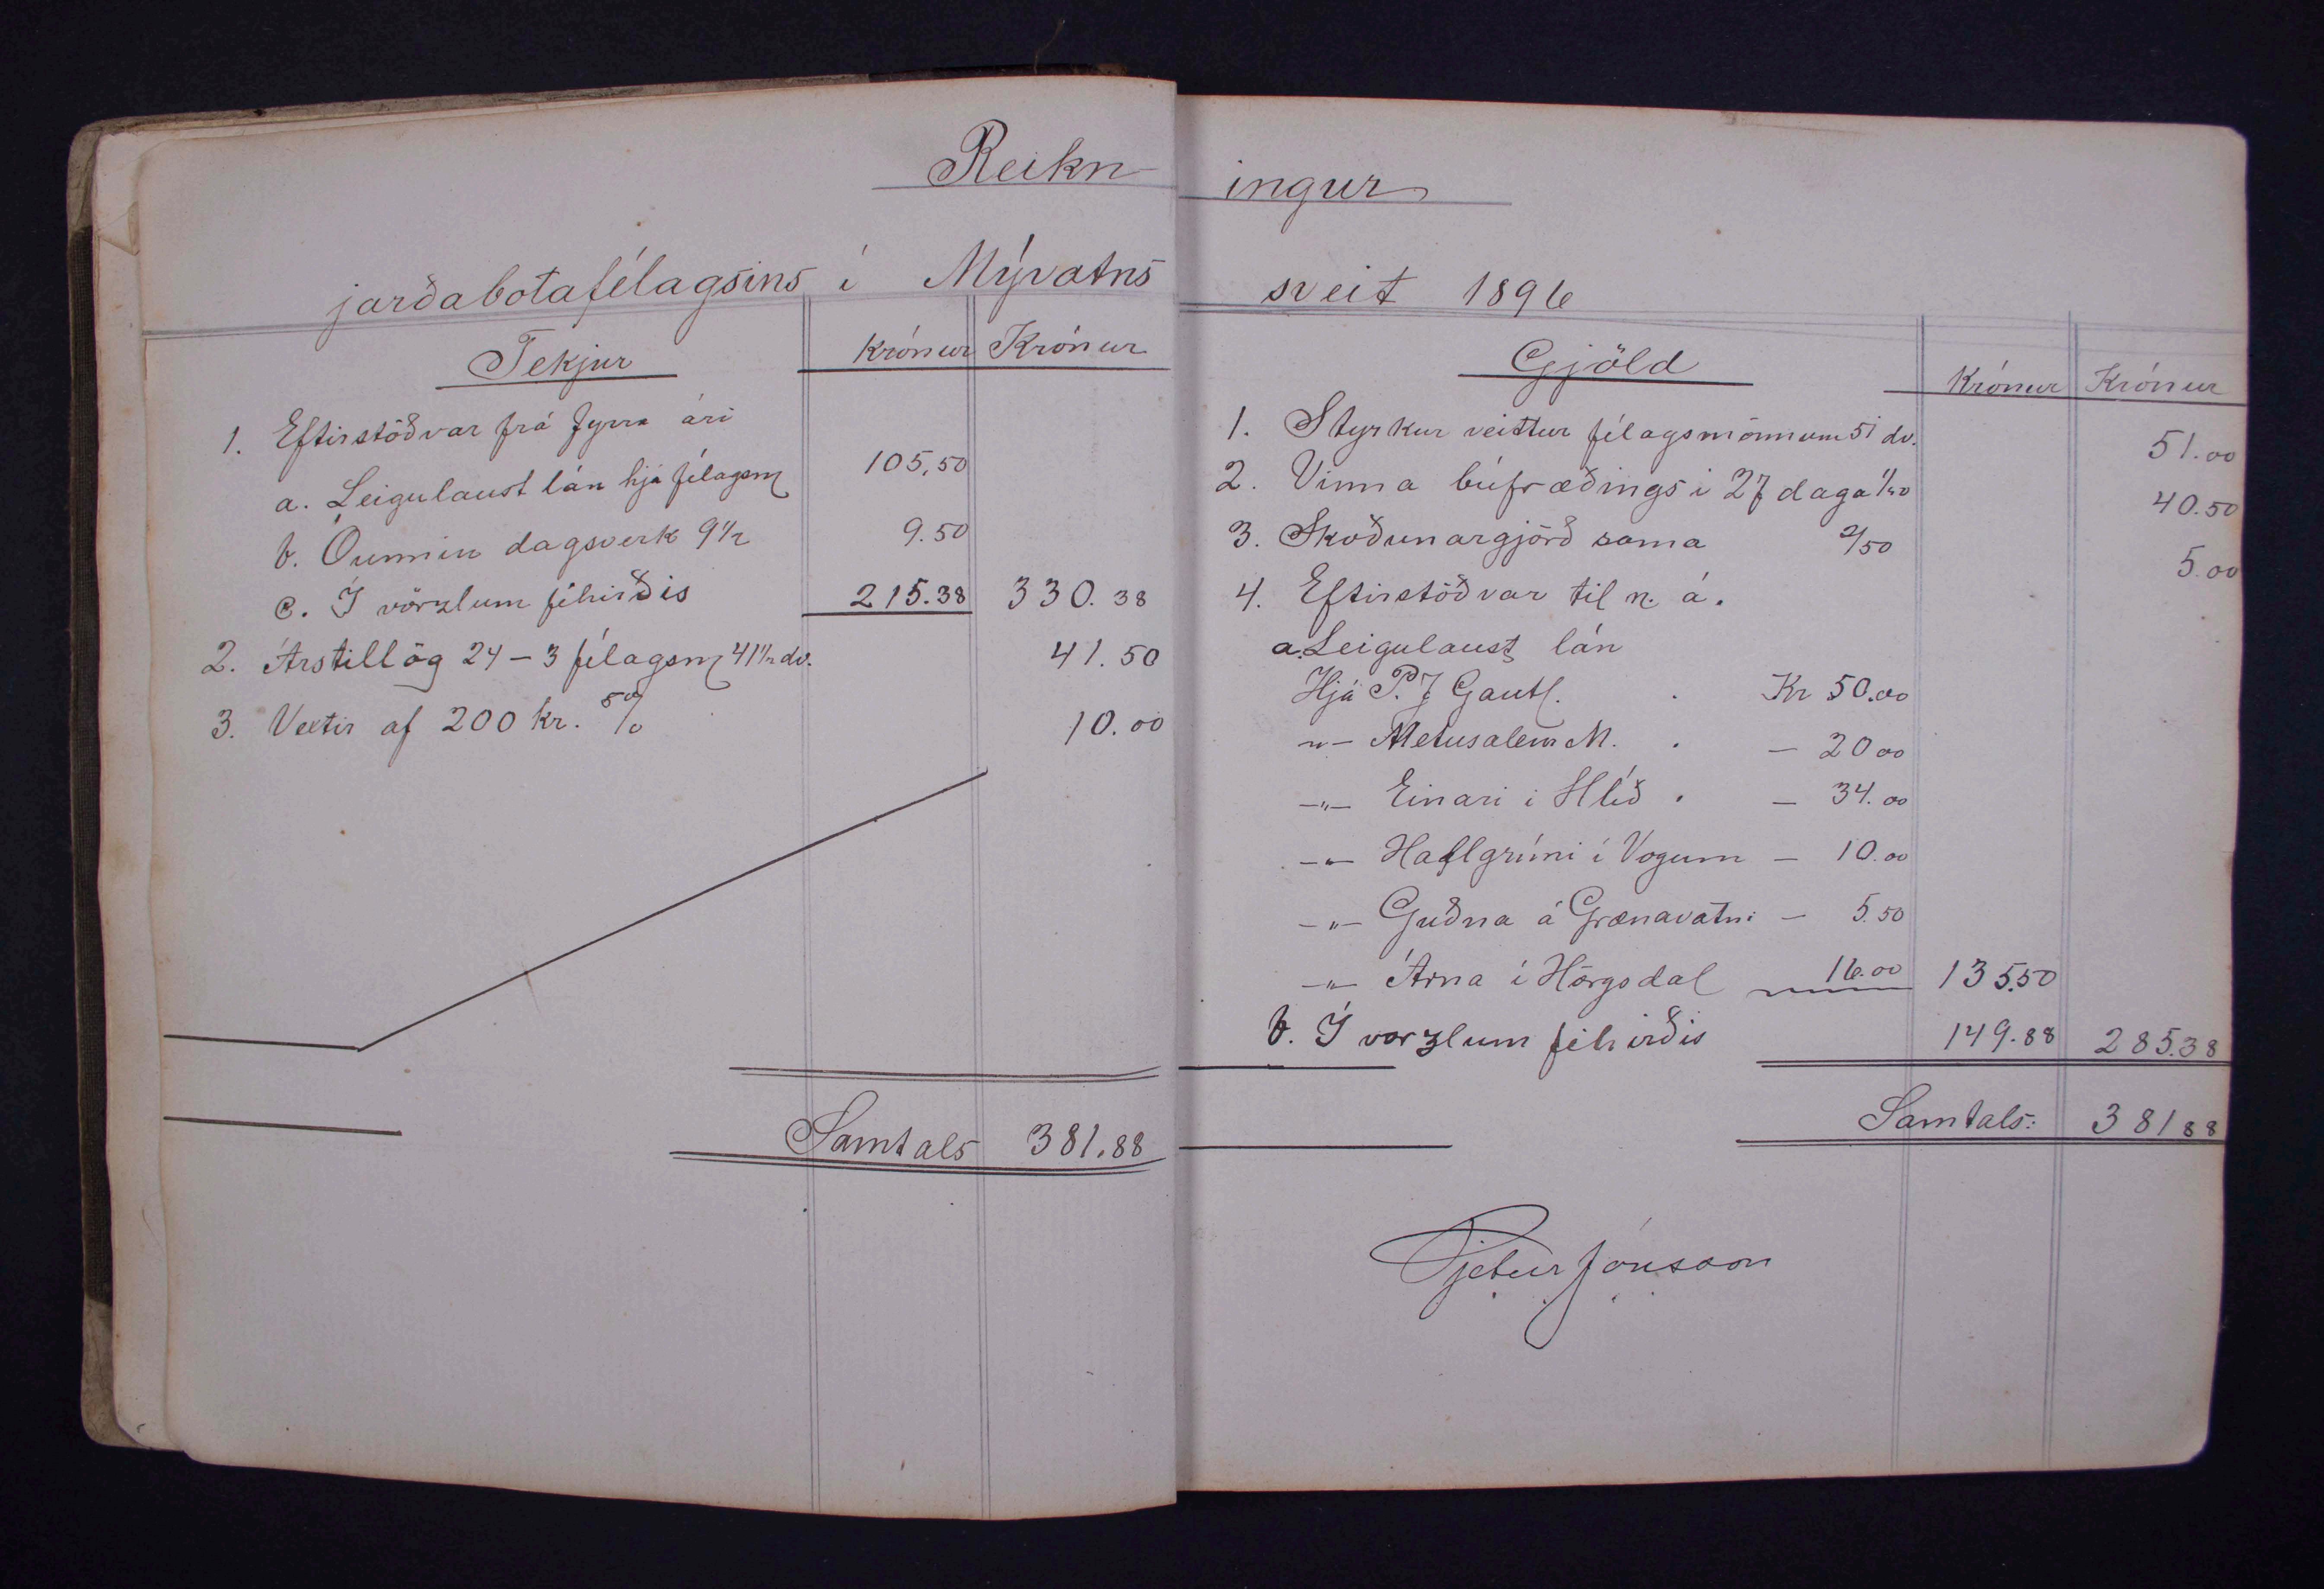 Reikn-
jarðabotafélagsins í Mývatns
Tekjur Krónur Krónur
1. Eftirstöðvar frá fyrra ári
a. Leigulaust lán hjá félagsm 105,50
b. Óunnin dagsverk 9½ 9.50
c. Í vörzlum féhirðis 215.38 330.38
2. Árstillög 24 – 3 félagsm 41½ dv. 41.50
3. Vextir af 200 kr. 5% 10.00
Samtals 381.88
ingur
sveit 1896
Gjöld Krónur Krónur
1. Styrkur veittur félagsmönnum 51 dv. 51.00
2. Vinna búfræðings i 27 daga 1/50 40.50
3. Skoðunargjörð sama 2/50 5.00
4. Eftirstöðvar til n. á.
a. Leigulaust lán
Hjá P. J Gautl. . Kr 50.00
-„- Metusalem M. . – 20 00
-„- Einari i Hlíð . – 34.00
-„- Hallgrími í Vogum – 10.00
-„- Guðna á Grænavatni – 5.50
-„- Árna í Hörgsdal 16.00 135.50
b. Í vorzlum féhirðis 149.88 285.38
Samtals: 381 88
Pjetur Jónsson